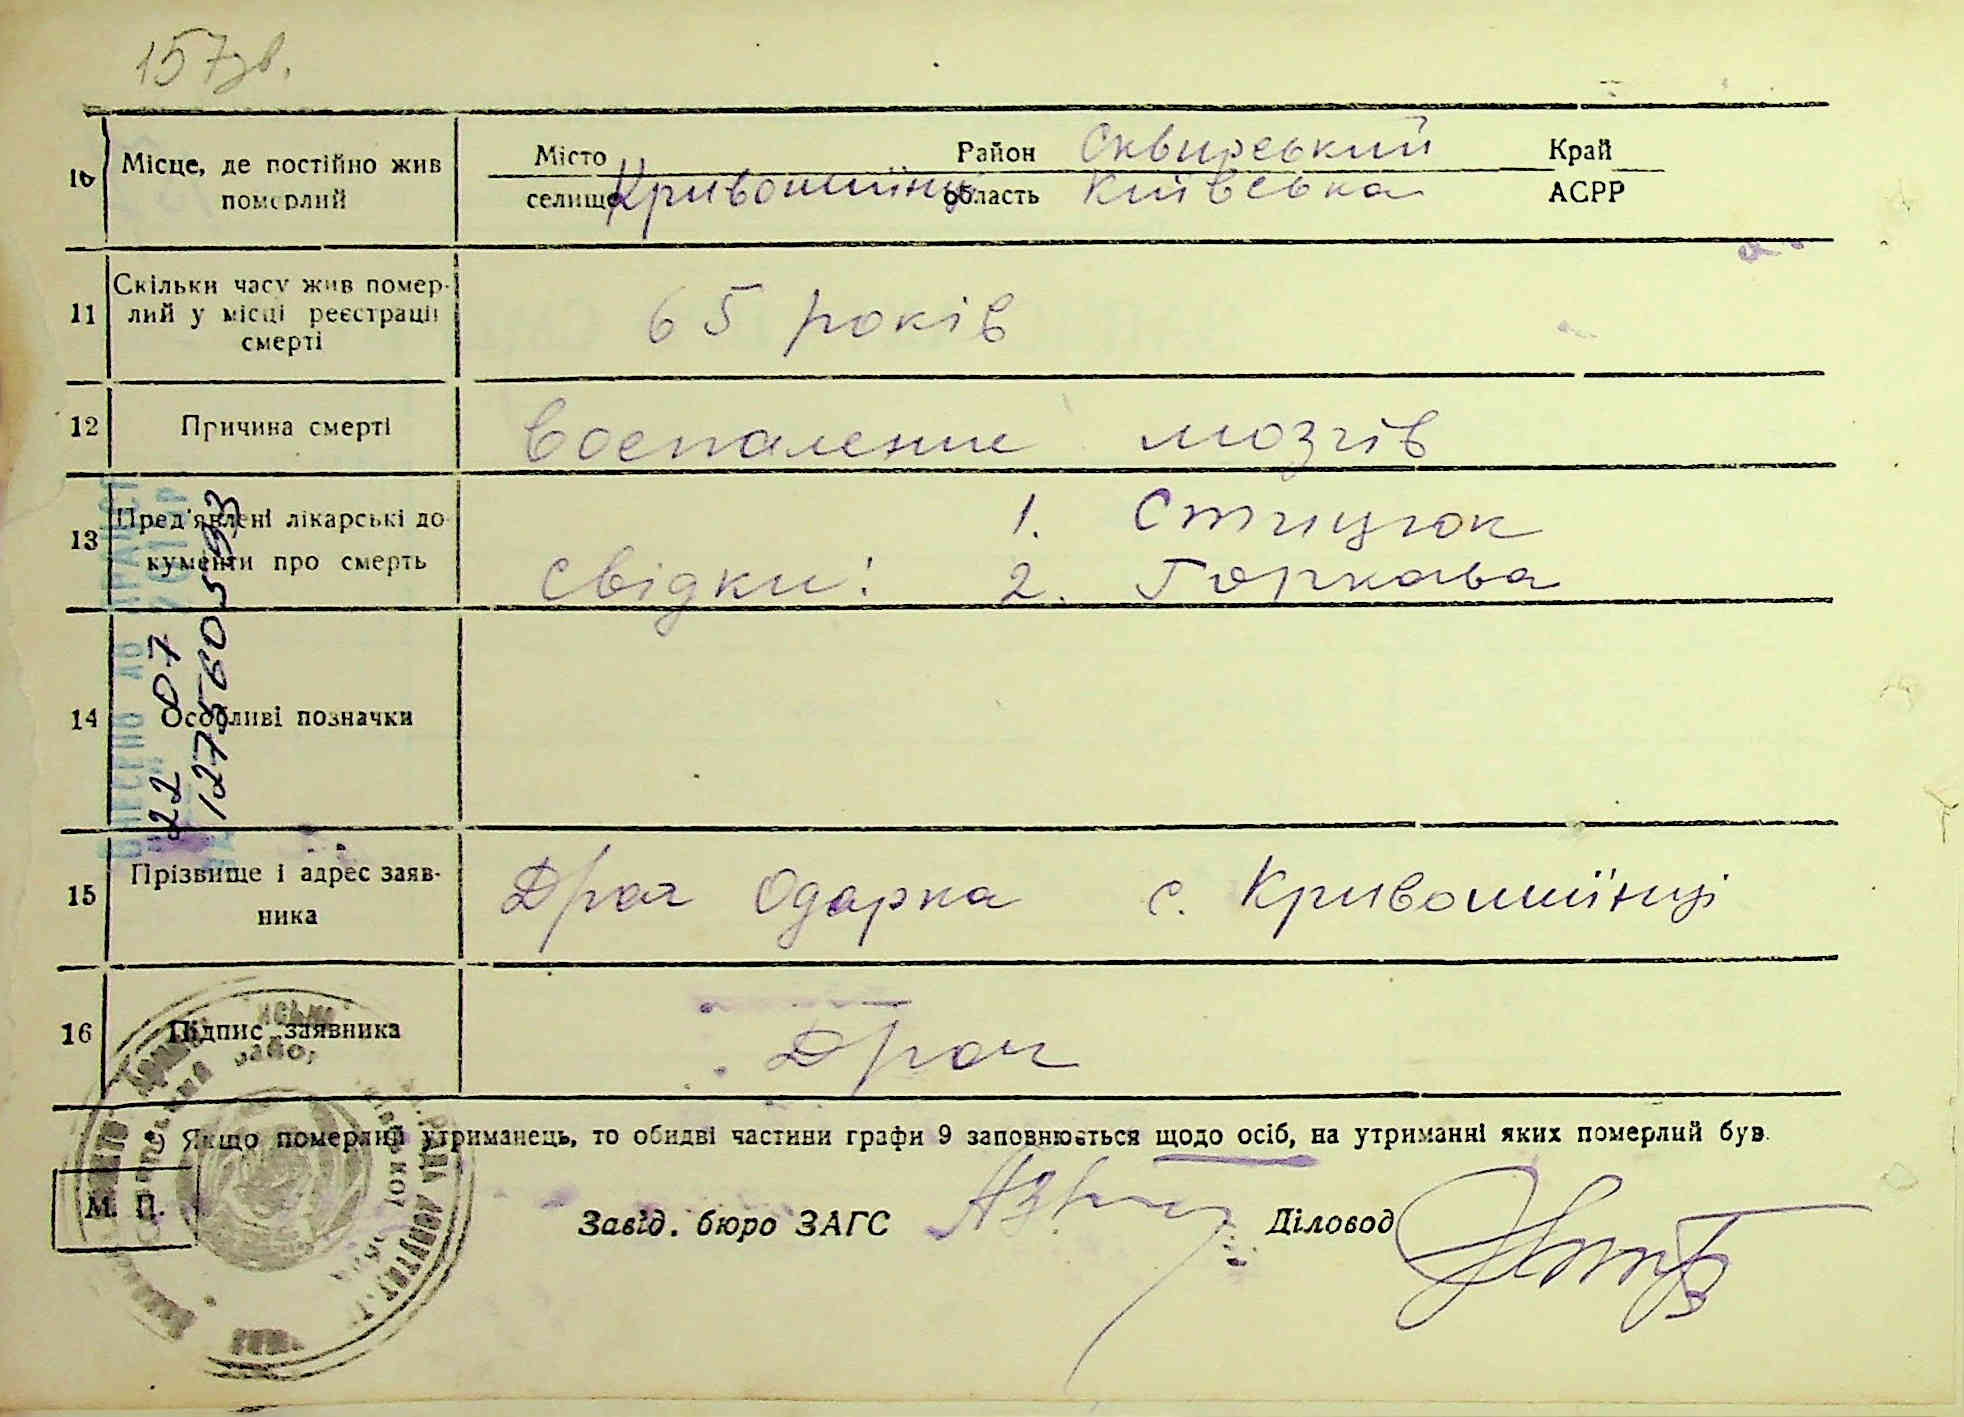 157зв.
10 Місце, де постійно жив померлий
Місто Район Сквирський Край
селище Кривошиїнці область Київська АСРР
11 Скільки часу жив помер-
лий у місці реєстрації
смерті
65 років
12 Причина смерті Воспаление мозгів
13 Пред'явлені лікарські до
кументи про смерть
1. Стицюк
Свідки: 2. Горкава
14 Особливі позначки
22 07
1275605 93
15 Прізвище і адрес заяв-
ника
Драч Одарка с. Кривошиїнці
16 Підпис заявника Драч
Якщо померлий утриманець, то обидві частини графи 9 заповнюється щодо осіб, на утриманні яких померлий був.
М. П.
Завід. бюро ЗАГС Діловод